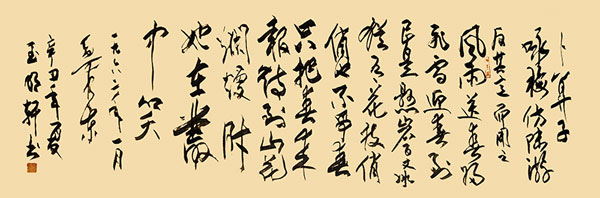 卜算子
咏梅仿陆游
反其意而用之
风雨送春归
飞雪迎春到
已是悬岩百丈冰
犹有花枝俏
俏也不争春
只把春来
报待到山花
烂熳时
她在丛
中笑
一九六二年一月
毛泽东
辛丑年夏
玉明轩书